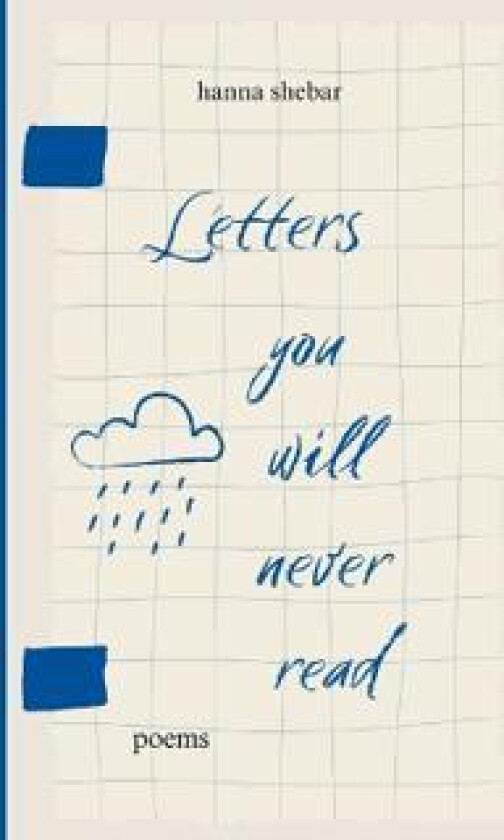 hanna shebar
Letters
you
will
never
read
poems